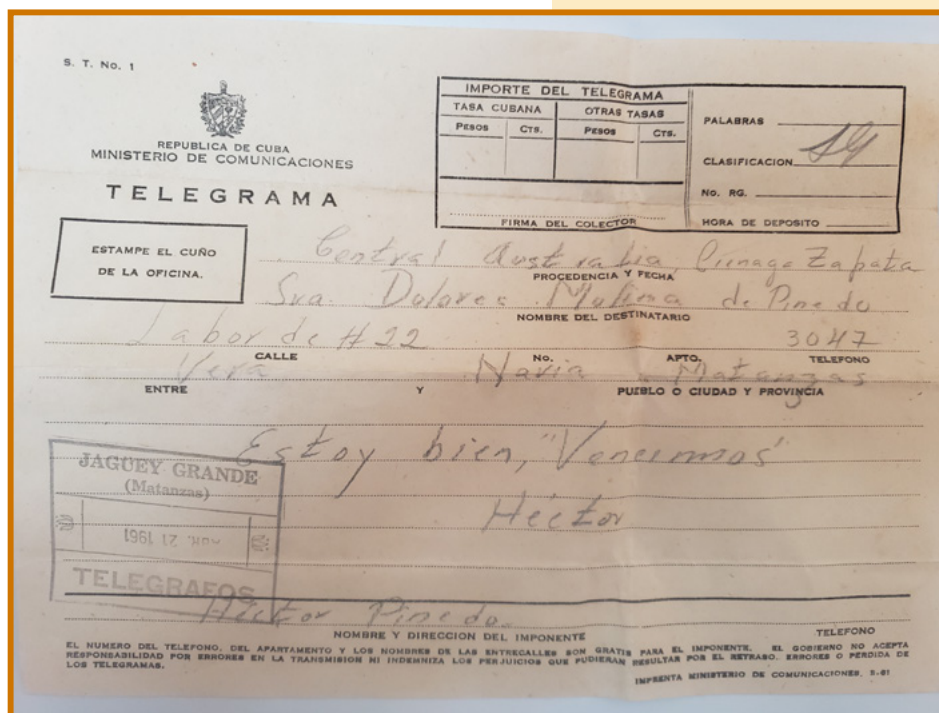 S. T. No. 1
REPUBLICA DE CUBA
MINISTERIO DE COMUNICACIONES
TELEGRAMA
IMPORTE DEL TELEGRAMA
TASA CUBANA OTRAS TASAS
PESOS CTS. PESOS CTS.
FIRMA DEL COLECTOR
PALABRAS
CLASIFICACION
No. RG.
HORA DE DEPOSITO
ESTAMPE EL CUÑO
DE LA OFICINA.
Central Australia Cienaga Zapata
PROCEDENCIA Y FECHA
Sra. Dolores Molina de Pinedo
NOMBRE DEL DESTINATARIO
Laborde #22 3047
CALLE No. APTO. TELEFONO
Vera Navia Matanzas
ENTRE Y PUEBLO O CIUDAD Y PROVINCIA
Estoy bien, "Vencimos"
Héctor
JAGUEY GRANDE
(Matanzas)
ABR. 21 1961
TELEGRAFOS
Héctor Pinedo.
NOMBRE Y DIRECCION DEL IMPONENTE TELEFONO
EL NUMERO DEL TELEFONO, DEL APARTAMENTO Y LOS NOMBRES DE LAS ENTRECALLES SON GRATIS PARA EL IMPONENTE. EL GOBIERNO NO ACEPTA
RESPONSABILIDAD POR ERRORES EN LA TRANSMISION NI INDEMNIZA LOS PERJUICIOS QUE PUDIERAN RESULTAR POR EL RETRASO, ERRORES O PERDIDA DE
LOS TELEGRAMAS.
IMPRENTA MINISTERIO DE COMUNICACIONES.